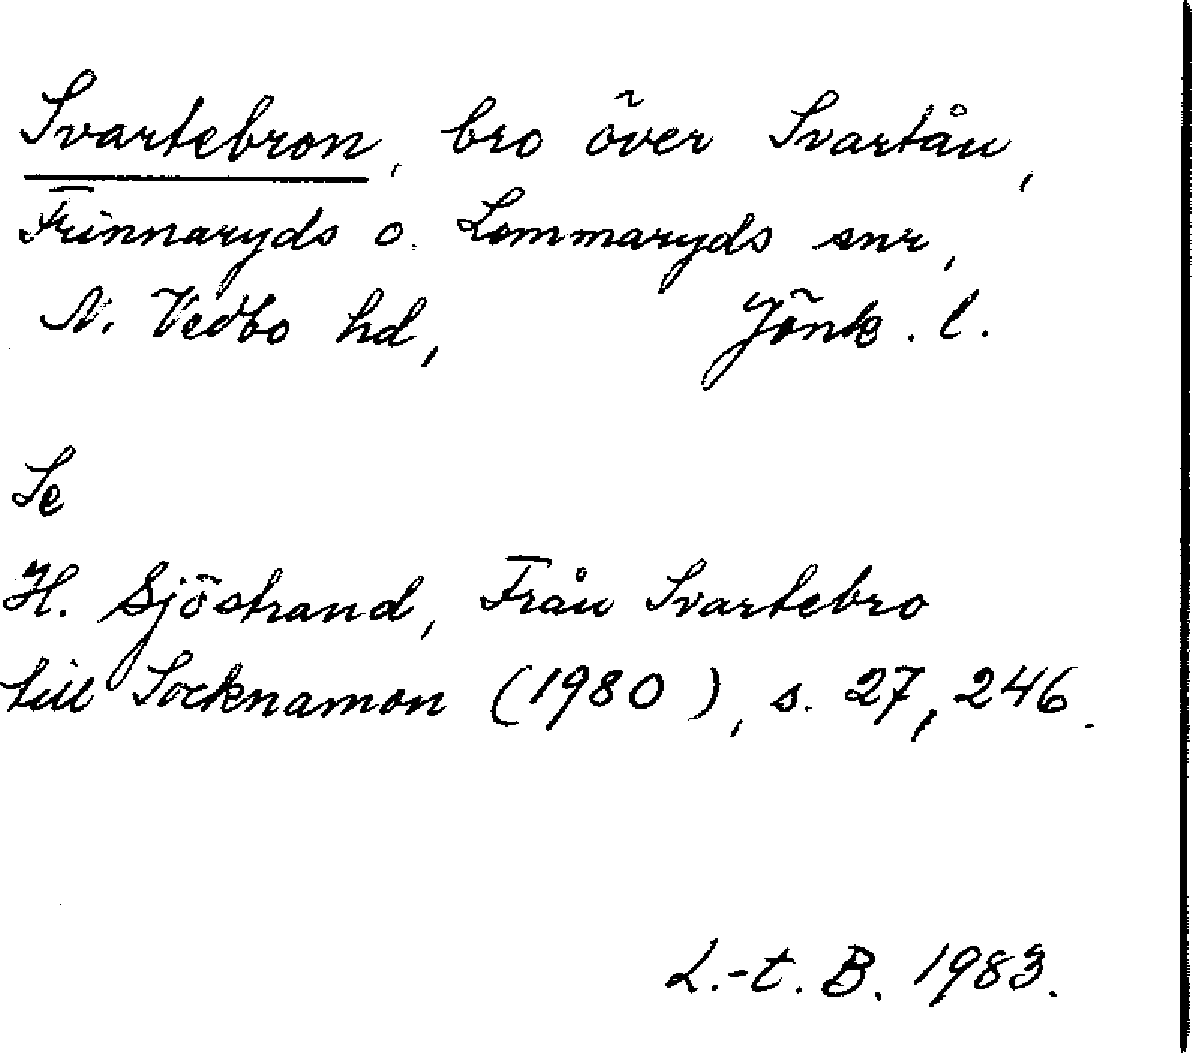 Svartebron, bro över Svartån,
Frinnaryds o. Lommaryds snr,
N. Vedbo hd, Jönk. l.
Se
H. Sjöstrand, Från Svartebro
till Socknamon (1980), s. 27, 246.
L.-t. B. 1983.